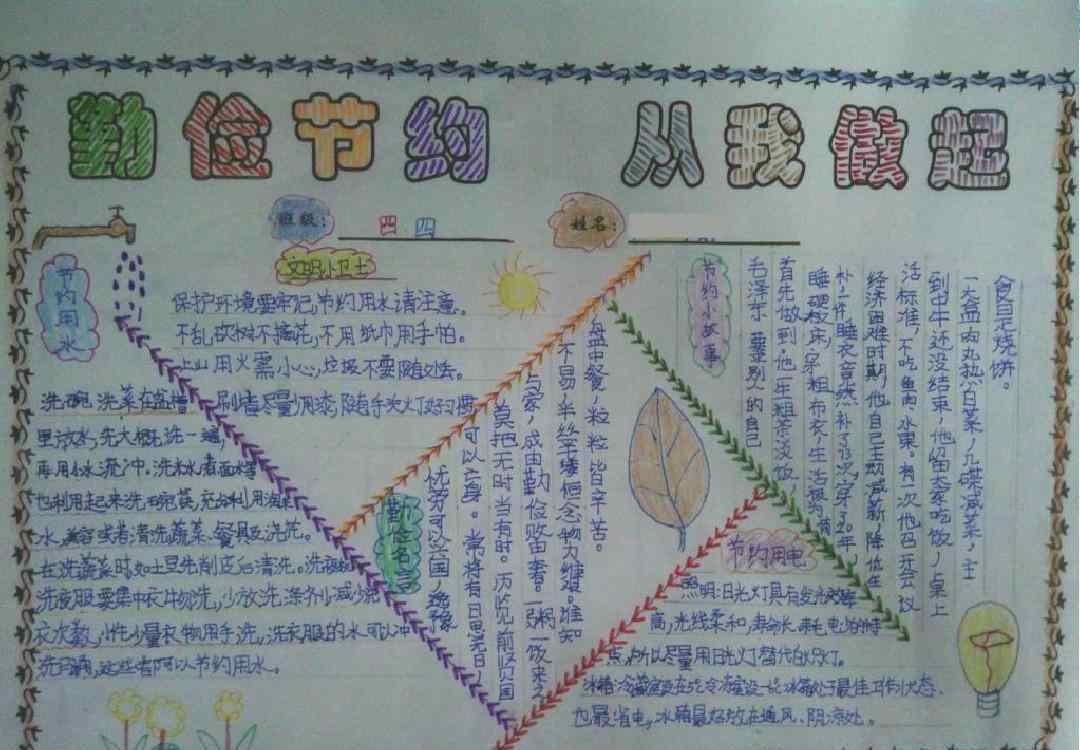 勤俭节约 从我做起
班级: 四 四 姓名:
文明小卫士
保护环境要牢记,节约用水请注意。
不乱砍树不摘花,不用纸巾用手帕。
上山用火需小心,垃圾不要随处丢。
刷牙尽量少用漆,随手关灯好习惯
节约用水
洗碗、洗菜在盆
里放水,先大概洗一遍,
再用小水流冲。洗米水、煮面水
也利用起来洗碗筷,
水,兼容或者清洗蔬菜、餐具及浇花。
在洗蔬菜时如土豆先削皮后清洗。
洗衣服要集中衣物洗,少放洗涤剂减少
衣次数,小件少量衣物用手洗,洗衣服的水可以冲
洗马桶,这些都可以节约用水。
勤俭名言
盘中餐,粒粒皆辛苦。
不易,半丝半缕恒念物力维艰。谁知
与家,成由勤俭败由奢。一粥一饭来之
莫把无时当有时。历览前贤国
可以亡身。常将有日思无日,
忧劳可以兴国,逸豫
节约小故事
毛泽东 要求别人的自己
首先做到,他一年粗茶淡饭,
睡硬板床,穿粗布衣,生活极为
补一件睡衣竟然补了73次,穿了20年,
经济困难时期,他自己主动减薪、降低生
活标准,不吃鱼肉、水果。有一次他召开会议
到中午还没结束,他留大家吃饭,桌上
一大盆肉丸熬白菜,几碟咸菜,主
食是烧饼。
节约用电
照明:日光灯具有发光
高,光线柔和,寿命长,耗电少的特
点,所以尽量用日光灯替代白炽灯。
冰箱处于最佳工作状态,
也最省电,冰箱最好放在通风、阴凉处。